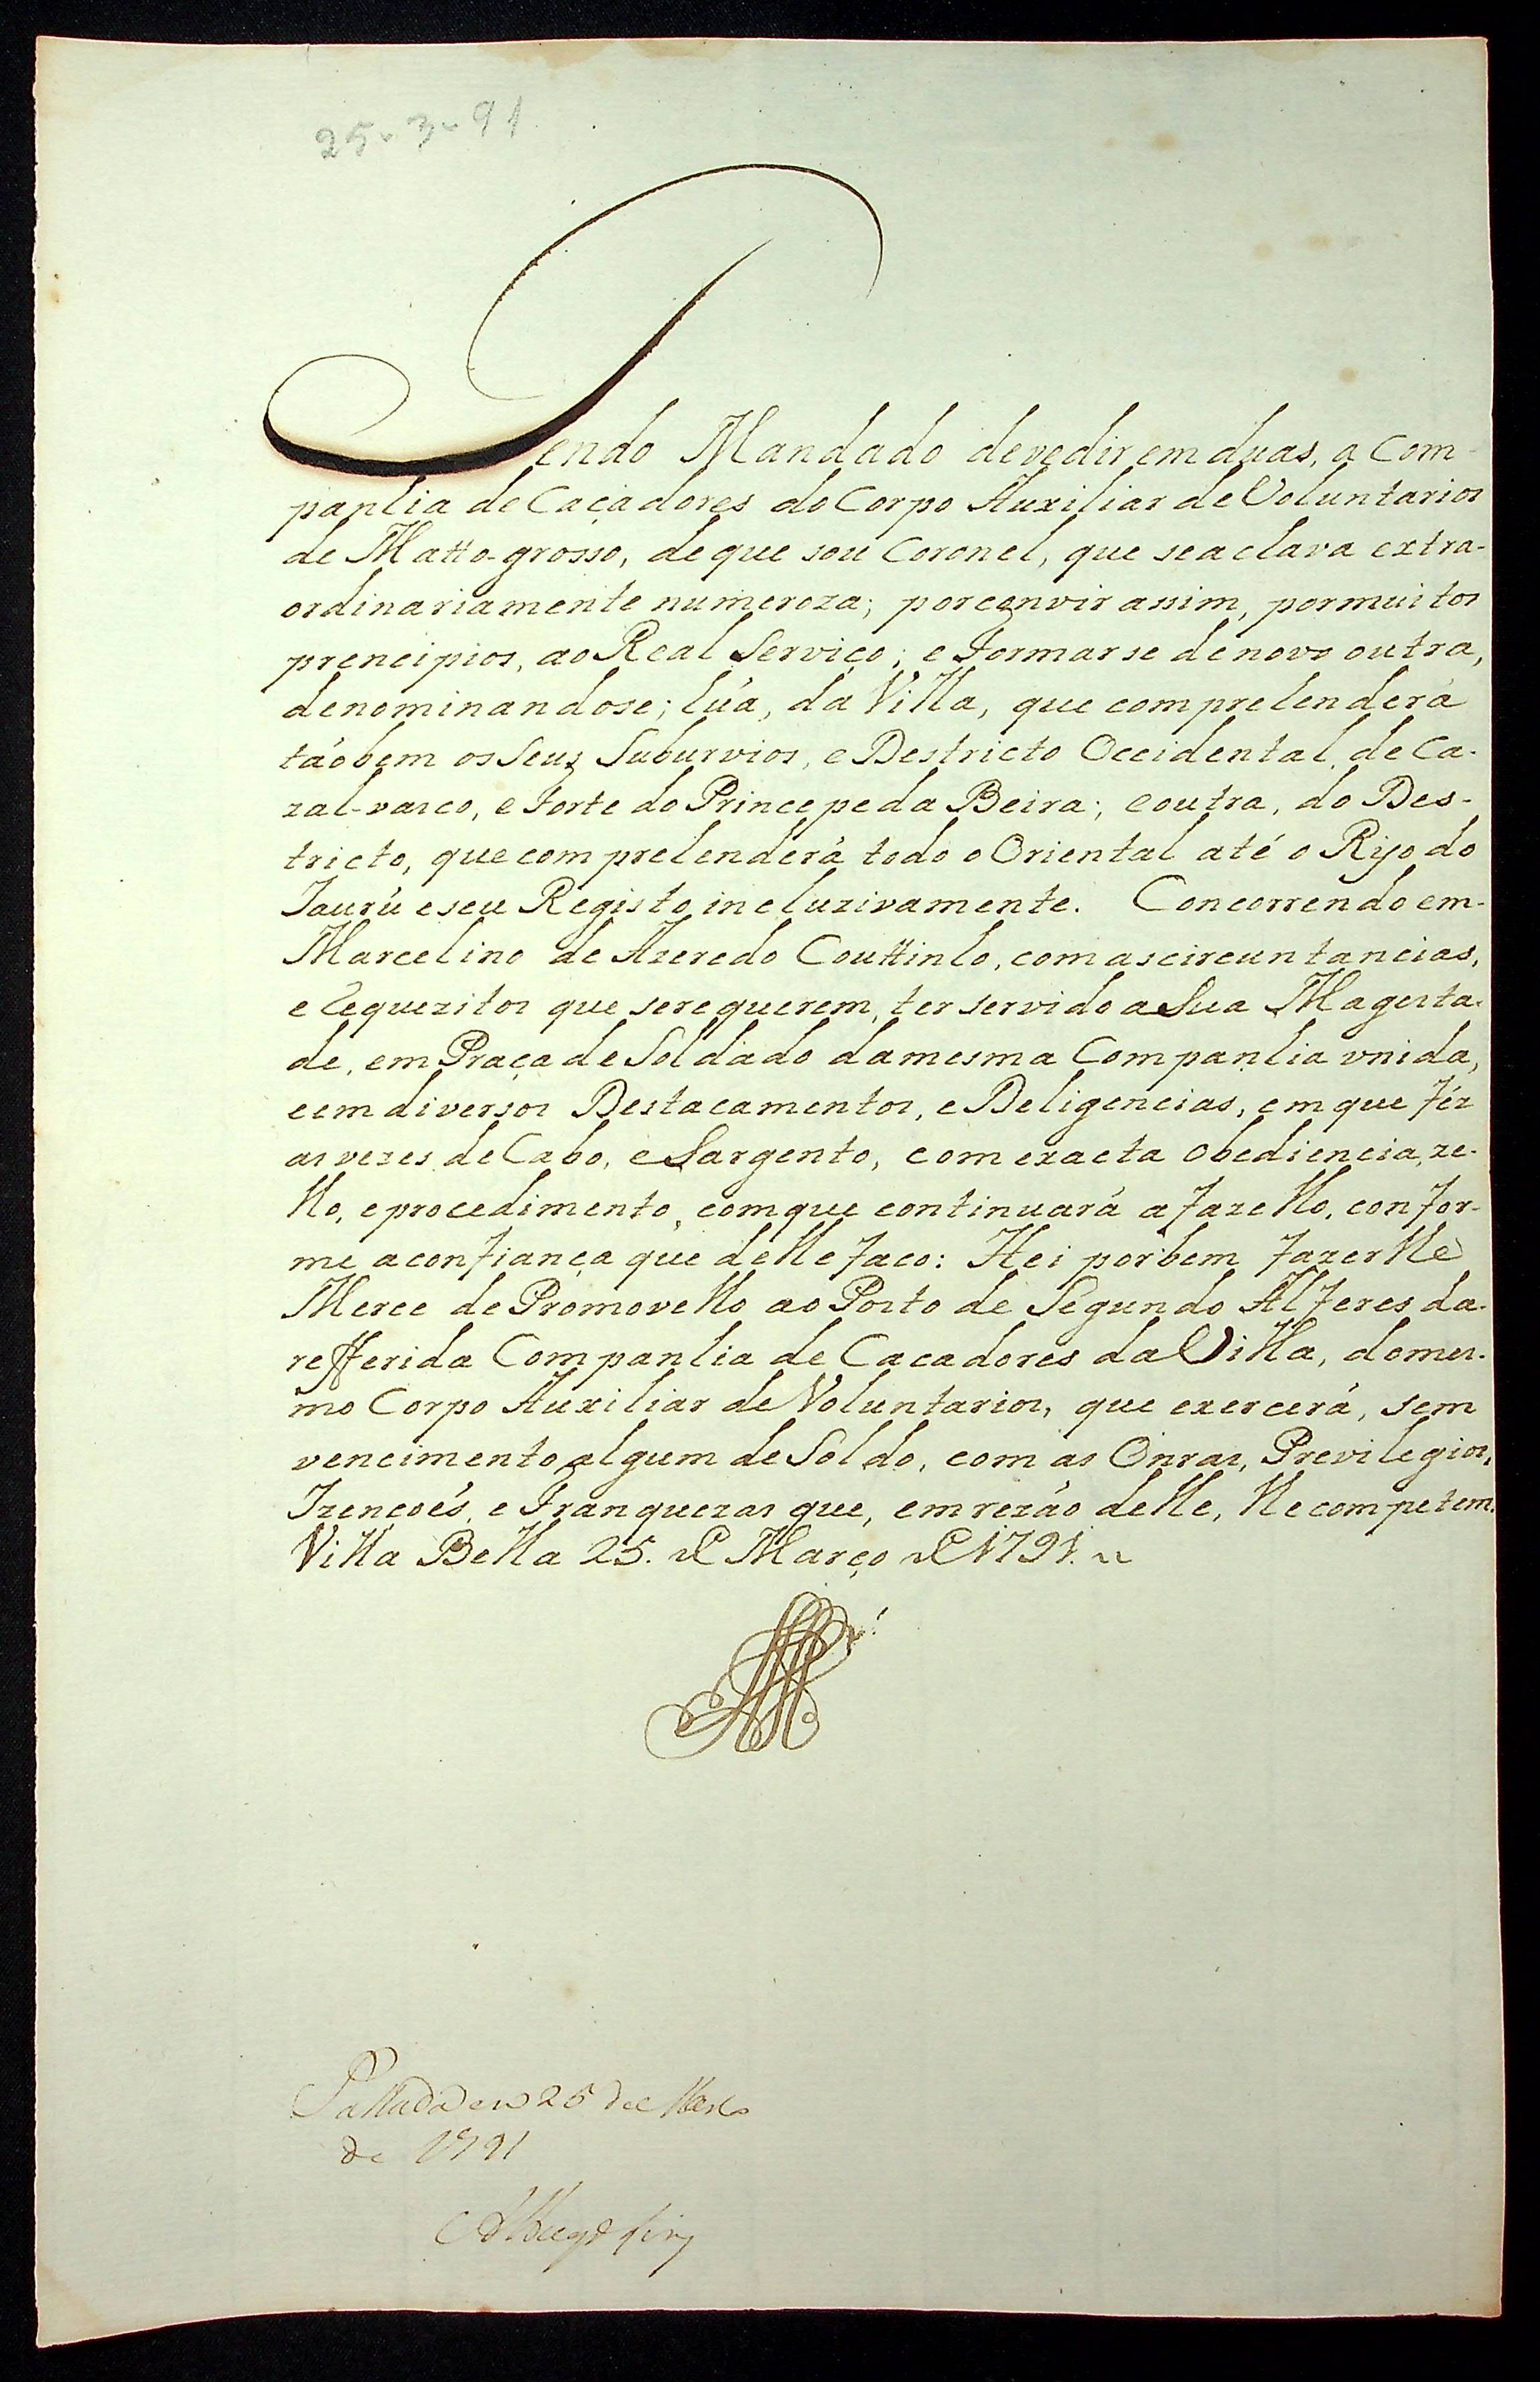 25-3-91
Tendo Mandado devedir em duas, a Com-
panhia de Caçadores do Corpo Auxiliar de Voluntarios
de Matto-grosso, de que sou Coronel, que se achava extra-
ordinariamente numeroza; por convir assim, por muitos
prencipios, ao Real Serviço; e Formarse de novo outra,
denominandose; húa, da Villa, que comprehenderá
táobem os Seus Suburvios, e Destricto Occidental, de Ca-
zal-vasco, e Forte do Princepe da Beira; e outra, do Des-
tricto, que comprehenderá todo o Oriental até o Rijo do
Jaurú e seu Registo incluzivamente. Concorrendo em
Marcelino de Azeredo Couttinho, com as circuntancias,
e requezitos que se requerem, ter servido a Sua Magesta-
de, em Praça de Soldado da mesma Companhia unida,
e em diversos Destacamentos, e Deligencias, em que féz
as vezes de Cabo, e Sargento, com exacta obediencia, ze-
llo, e procedimento, com que continuará a fazello, confor-
me a confiança que delle faco: Hei por bem fazerlhe
Merce de Promovello ao Posto de Segundo Alferes da
refferida Companhia de Cacadores da Villa, do mes-
mo Corpo Auxiliar de Voluntarios, que exercerá, sem
vencimento algum de Soldo, com as Onras, Previlegios,
Izencoés, e Franquezas que, em rezáo delle, lhe competem.
Villa Bella 25. de Março de 1791.
Passada em 25 de Março
de 1791